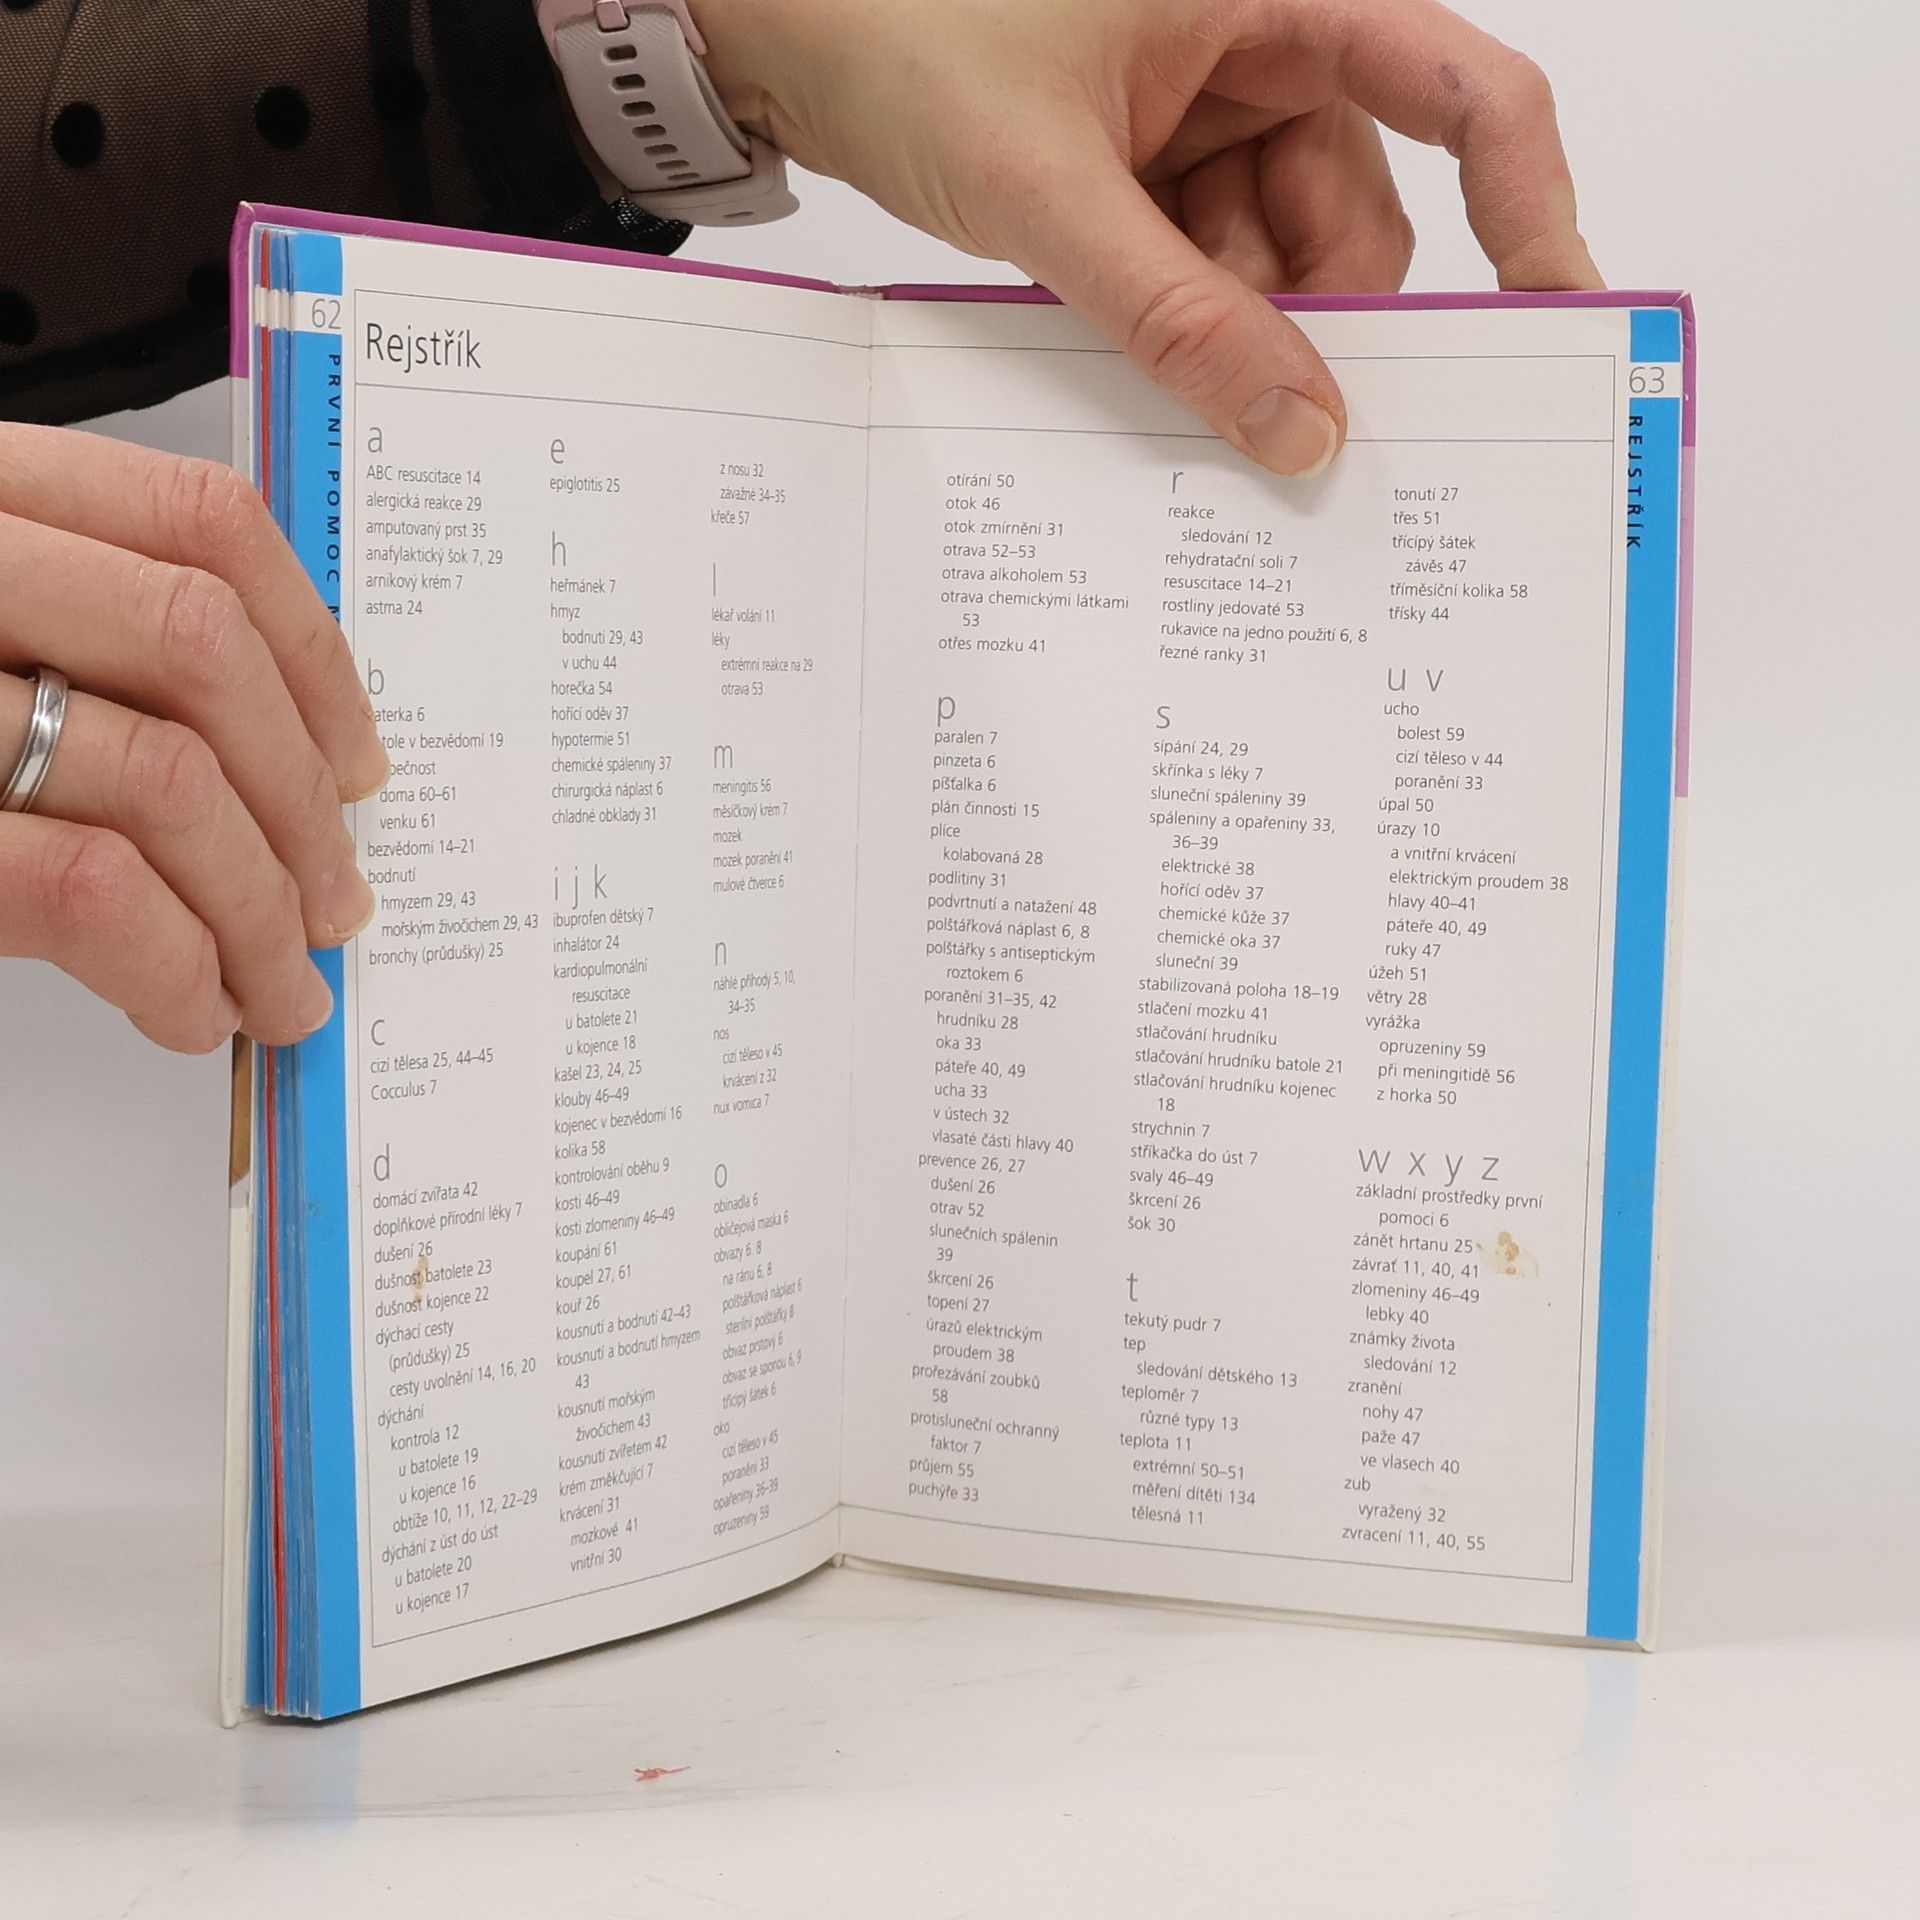 62
PRVNÍ POMOC
Rejstřík
a
ABC resuscitace 14
alergická reakce 29
amputovaný prst 35
anafylaktický šok 7, 29
arnikový krém 7
astma 24
b
6
v bezvědomí 19
doma 60–61
venku 61
bezvědomí 14–21
bodnutí
hmyzem 29, 43
mořským živočichem 29, 43
bronchy (průdušky) 25
c
cizí tělesa 25, 44–45
Cocculus 7
d
domácí zvířata 42
doplňkové přírodní léky 7
dušení 26
dušnost batolete 23
dušnost kojence 22
dýchací cesty
(průdušky) 25
cesty uvolnění 14, 16, 20
dýchání
kontrola 12
u batolete 19
u kojence 16
obtíže 10, 11, 12, 22–29
dýchání z úst do úst
u batolete 20
u kojence 17
e
epiglotitis 25
h
heřmánek 7
hmyz
bodnutí 29, 43
v uchu 44
horečka 54
hořící oděv 37
hypotermie 51
chemické spáleniny 37
chirurgická náplast 6
chladné obklady 31
i j k
ibuprofen dětský 7
inhalátor 24
kardiopulmonální
resuscitace
u batolete 21
u kojence 18
kašel 23, 24, 25
klouby 46–49
kojenec v bezvědomí 16
kolika 58
kontrolování oběhu 9
kosti 46–49
kosti zlomeniny 46–49
koupání 61
koupel 27, 61
kouř 26
kousnutí a bodnutí 42–43
kousnutí a bodnutí hmyzem
43
kousnutí mořským
živočichem 43
kousnutí zvířetem 42
krém změkčující 7
krvácení 31
mozkové 41
vnitřní 30
z nosu 32
závažné 34–35
křeče 57
l
lékař volání 11
léky
extrémní reakce na 29
otrava 53
m
meningitis 56
měsíčkový krém 7
mozek
mozek poranění 41
mulové čtverce 6
n
náhlé příhody 5, 10,
34–35
nos
cizí těleso v 45
krvácení z 32
nux vomica 7
o
obinadla 6
obličejová maska 6
obvazy 6, 8
na ránu 6, 8
polštářková náplast 6
sterilní polštářky 8
obvaz prstový 6
obvaz se sponou 6, 9
třícípý šátek 6
oko
cizí těleso v 45
poranění 33
opařeniny 36–39
opruzeniny 59
otírání 50
otok 46
otok zmírnění 31
otrava 52–53
otrava alkoholem 53
otrava chemickými látkami
53
otřes mozku 41
p
paralen 7
pinzeta 6
píšťalka 6
plán činnosti 15
plíce
kolabovaná 28
podlitiny 31
podvrtnutí a natažení 48
polštářková náplast 6, 8
polštářky s antiseptickým
roztokem 6
poranění 31–35, 42
hrudníku 28
oka 33
páteře 40, 49
ucha 33
v ústech 32
vlasaté části hlavy 40
prevence 26, 27
dušení 26
otrav 52
slunečních spálenin
39
škrcení 26
topení 27
úrazů elektrickým
proudem 38
prořezávání zoubků
58
protisluneční ochranný
faktor 7
průjem 55
puchýře 33
r
reakce
sledování 12
rehydratační soli 7
resuscitace 14–21
rostliny jedovaté 53
rukavice na jedno použití 6, 8
řezné ranky 31
s
sípání 24, 29
skřínka s léky 7
sluneční spáleniny 39
spáleniny a opařeniny 33,
36–39
elektrické 38
hořící oděv 37
chemické kůže 37
chemické oka 37
sluneční 39
stabilizovaná poloha 18–19
stlačení mozku 41
stlačování hrudníku
stlačování hrudníku batole 21
stlačování hrudníku kojenec
18
strychnin 7
stříkačka do úst 7
svaly 46–49
škrcení 26
šok 30
t
tekutý pudr 7
tep
sledování dětského 13
teploměr 7
různé typy 13
teplota 11
extrémní 50–51
měření dítěti 134
tělesná 11
tonutí 27
třes 51
třícípý šátek
závěs 47
tříměsíční kolika 58
třísky 44
u v
ucho
bolest 59
cizí těleso v 44
poranění 33
úpal 50
úrazy 10
a vnitřní krvácení
elektrickým proudem 38
hlavy 40–41
páteře 40, 49
ruky 47
úžeh 51
větry 28
vyrážka
opruzeniny 59
při meningitidě 56
z horka 50
w x y z
základní prostředky první
pomoci 6
zánět hrtanu 25
závrať 11, 40, 41
zlomeniny 46–49
lebky 40
známky života
sledování 12
zranění
nohy 47
paže 47
ve vlasech 40
zub
vyražený 32
zvracení 11, 40, 55
63
REJSTŘÍK